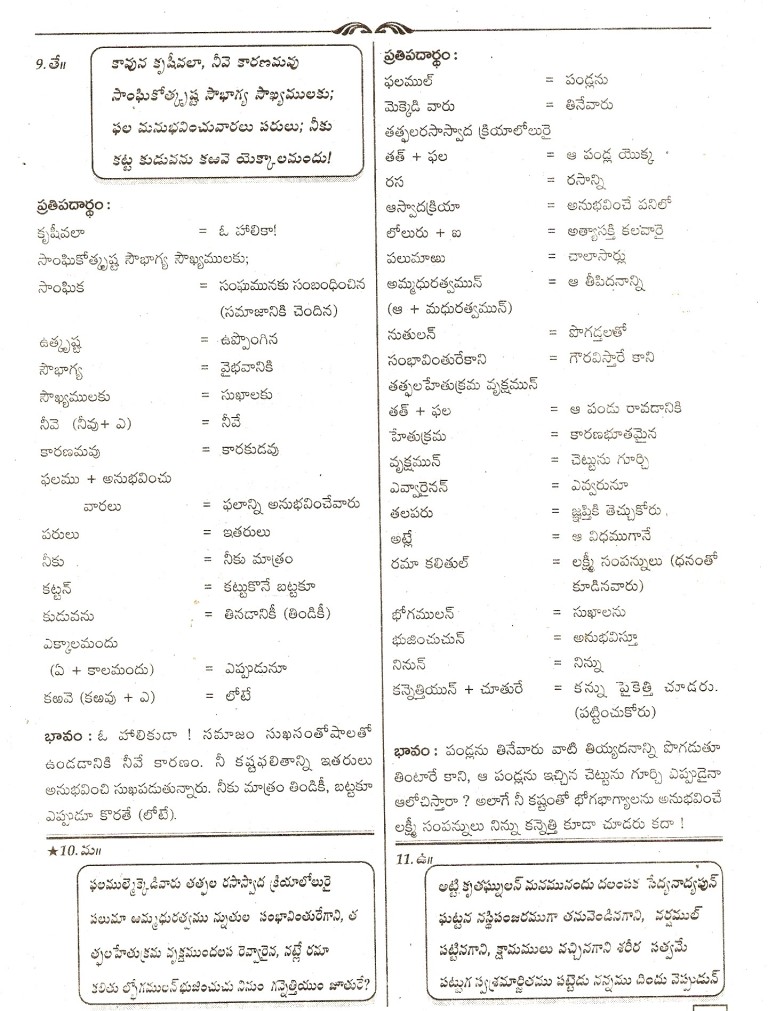 9. తే॥
కావున కృషీవలా, నీవె కారణమవు
సాంఘికోత్కృష్ట సౌభాగ్య సౌఖ్యములకు;
ఫల మనుభవించువారలు పరులు; నీకు
కట్ట కుడువను కఱవె యెక్కాలమందు!
ప్రతిపదార్థం :
కృషీవలా = ఓ హాలికా!
సాంఘికోత్కృష్ట సౌభాగ్య సౌఖ్యములకు;
సాంఘిక = సంఘమునకు సంబంధించిన
(సమాజానికి చెందిన)
ఉత్కృష్ట = ఉప్పొంగిన
సౌభాగ్య = వైభవానికి
సౌఖ్యములకు = సుఖాలకు
నీవె (నీవు+ ఎ) = నీవే
కారణమవు = కారకుడవు
ఫలము + అనుభవించు
వారలు = ఫలాన్ని అనుభవించేవారు
పరులు = ఇతరులు
నీకు = నీకు మాత్రం
కట్టన్ = కట్టుకొనే బట్టకూ
కుడువను = తినడానికీ (తిండికీ)
ఎక్కాలమందు
(ఏ + కాలమందు) = ఎప్పుడునూ
కఱవె (కఱవు + ఎ) = లోటే
భావం : ఓ హాలికుడా ! సమాజం సుఖసంతోషాలతో
ఉండడానికి నీవే కారణం. నీ కష్టఫలితాన్ని ఇతరులు
అనుభవించి సుఖపడుతున్నారు. నీకు మాత్రం తిండికీ, బట్టకూ
ఎప్పుడూ కొరతే (లోటే).
★10. మ॥
ఫలముల్మెక్కెడివారు తత్ఫల రసాస్వాద క్రియాలోలురై
పలుమా ఱమ్మధురత్వము న్నుతుల సంభావింతురేగాని, త
త్ఫలహేతుక్రమ వృక్షముందలప రెవ్వారైన, నట్లే రమా
కలితు ల్భోగములన్‌భుజించుచు నినుం గన్నెత్తియుం జూతురే?
ప్రతిపదార్థం :
ఫలముల్ = పండ్లను
మెక్కెడి వారు = తినేవారు
తత్ఫలరసాస్వాద క్రియాలోలురై
తత్ + ఫల = ఆ పండ్ల యొక్క
రస = రసాన్ని
ఆస్వాదక్రియా = అనుభవించే పనిలో
లోలురు + ఐ = అత్యాసక్తి కలవారై
పలుమాఱు = చాలాసార్లు
అమ్మధురత్వమున్ = ఆ తీపిదనాన్ని
(ఆ + మధురత్వమున్)
నుతులన్ = పొగడ్తలతో
సంభావింతురేకాని = గౌరవిస్తారే కాని
తత్ఫలహేతుక్రమ వృక్షమున్
తత్ + ఫల = ఆ పండు రావడానికి
హేతుక్రమ = కారణభూతమైన
వృక్షమున్ = చెట్టును గూర్చి
ఎవ్వారైనన్ = ఎవ్వరునూ
తలపరు = జ్ఞప్తికి తెచ్చుకోరు.
అట్లే = ఆ విధముగానే
రమా కలితుల్ = లక్ష్మీ సంపన్నులు (ధనంతో
కూడినవారు)
భోగములన్ = సుఖాలను
భుజించుచున్ = అనుభవిస్తూ
నినున్ = నిన్ను
కన్నెత్తియున్ + చూతురే = కన్ను పైకెత్తి చూడరు.
(పట్టించుకోరు)
భావం : పండ్లను తినేవారు వాటి తియ్యదనాన్ని పొగడుతూ
తింటారే కాని, ఆ పండ్లను ఇచ్చిన చెట్టును గూర్చి ఎప్పుడైనా
ఆలోచిస్తారా ? అలాగే నీ కష్టంతో భోగభాగ్యాలను అనుభవించే
లక్ష్మీ సంపన్నులు నిన్ను కన్నెత్తి కూడా చూడరు కదా !
11. ఉ॥
అట్టి కృతఘ్నులన్ మనమునందు దలంపక సేద్యనాద్యపున్
ఘట్టన నస్థిపంజరముగా తనువెండినగాని, వర్షముల్
పట్టినగాని, క్షామములు వచ్చినగాని శరీర సత్వమే
పట్టుగ స్వశ్రమార్జితము పట్టెడు నన్నము దిందు వెప్పుడున్